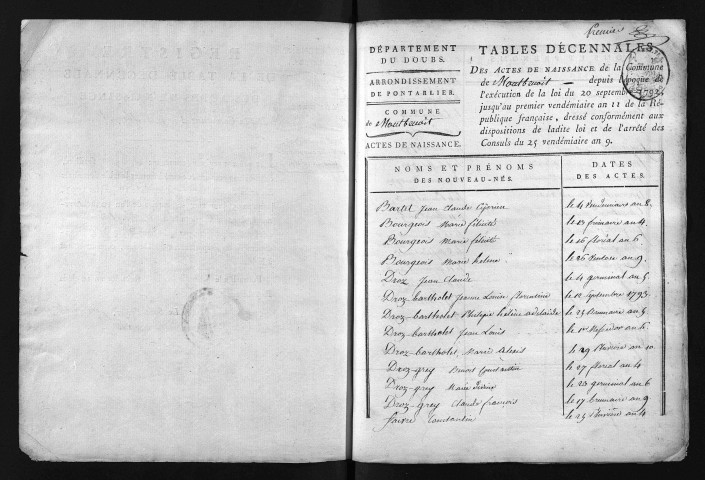 Premier
DÉPARTEMENT
DU DOUBS.
ARRONDISSEMENT
DE PONTARLIER.
COMMUNE
de Montbenoit
ACTES DE NAISSANCE.
TABLES DÉCENNALES
DES ACTES DE NAISSANCE de la Commune
de Montbenoit — depuis l'époque de
l'exécution de la loi du 20 septembre 1792,
jusqu'au premier vendémiaire an 11 de la Ré-
publique française, dressé conformément aux
dispositions de ladite loi et de l'arrêté des
Consuls du 25 vendémiaire an 9.
NOMS ET PRÉNOMS
DES NOUVEAU-NÉS.
DATES
DES ACTES.
Jean Claude le 4 an 8.
Bourgeois Marie félicité le 13 frimaire an 4.
Bourgeois Marie félicité le 16 floréal an 6.
Bourgeois Marie helene le 26 Ventose an 9.
Droz Jean Claude le 4 germinal an 5.
Droz-bartholet Jeanne Louise florentine le 11 Septembre 1793.
Droz-bartholet Philippe helene adelaide le 23 Brumaire an 5.
Droz-bartholet Jean Louis le 1er Messidor an 6.
Droz-bartholet Marie Alexis le 29 Pluviose an 10.
Droz-grey Benoit Constantin le 27 floréal an 4
Droz-grey Marie le 20 germinal an 6
Droz-grey Claude francois le 17 brumaire an 9
faivre Constantin le 25 an 4